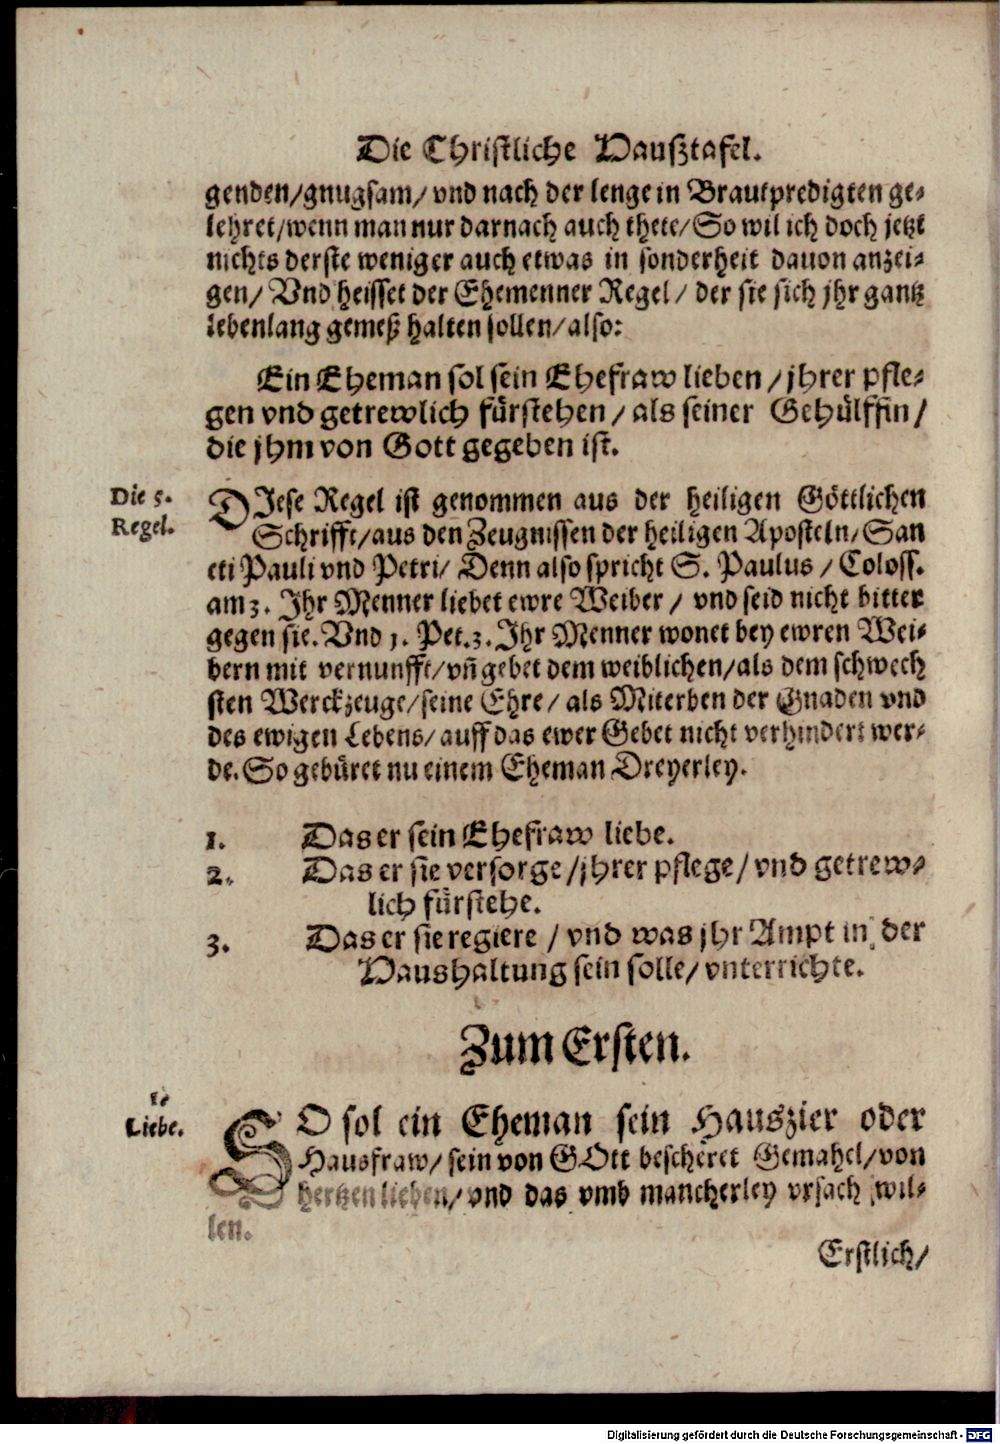 Die Christliche Haußtafel.
genden/gnugsam/ vnd nach der lenge in Brautpredigten ge-
lehret/wenn man nur darnach auch thete/So wil ich doch jetzt
nichts derste weniger auch etwas in sonderheit dauon anzei-
gen/ Vnd heisset der Ehemenner Regel/ der sie sich jhr gantz
lebenlang gemeß halten sollen/also:
Ein Eheman sol sein Ehefraw lieben/jhrer pfle-
gen vnd getrewlich fürstehen/ als seiner Gehülffin/
die jhm von Gott gegeben ist.
Die 5.
Regel.
DIese Regel ist genommen aus der heiligen Göttlichen
Schrifft/aus den Zeugnissen der heiligen Aposteln/San
cti Pauli vnd Petri/ Denn also spricht S. Paulus/ Coloss.
am 3. Ihr Menner liebet ewre Weiber/ vnd seid nicht bitter
gegen sie. Vnd 1. Pet. 3. Ihr Menner wonet bey ewren Wei-
bern mit vernunfft/vñ gebet dem weiblichen/als dem schwech
sten Werckzeuge/seine Ehre/ als Miterben der Gnaden vnd
des ewigen Lebens/ auff das ewer Gebet nicht verhindert wer-
de. So gebüret nu einem Eheman Dreyerley.
1. Das er sein Ehefraw liebe.
2. Das er sie versorge/jhrer pflege/ vnd getrew-
lich fürstehe.
3. Das er sie regiere/ vnd was jhr Ampt in der
Haushaltung sein solle/ vnterrichte.
Zum Ersten.
1.
Liebe.
SO sol ein Eheman sein Hauszier oder
Hausfraw/ sein von GOtt bescheret Gemahel/von
hertzen lieben/ vnd das vmb mancherley vrsach wil-
len.
Erstlich/
Digitalisierung gefördert durch die Deutsche Forschungsgemeinschaft - DFG